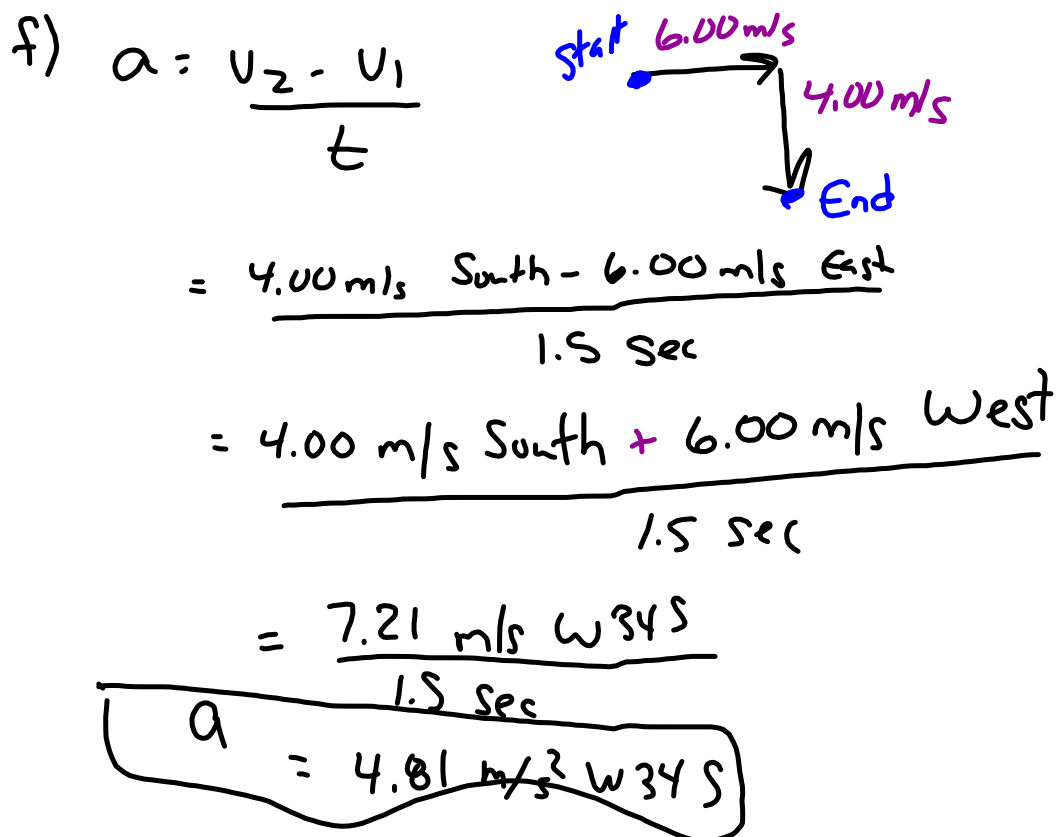 f) a = V2 - V1
t
start 6.00 m/s
4.00 m/s
End
= 4.00 m/s South - 6.00 m/s East
1.5 sec
= 4.00 m/s South + 6.00 m/s West
1.5 sec
= 7.21 m/s W 34 S
1.5 sec
a = 4.81 m/s² W 34 S